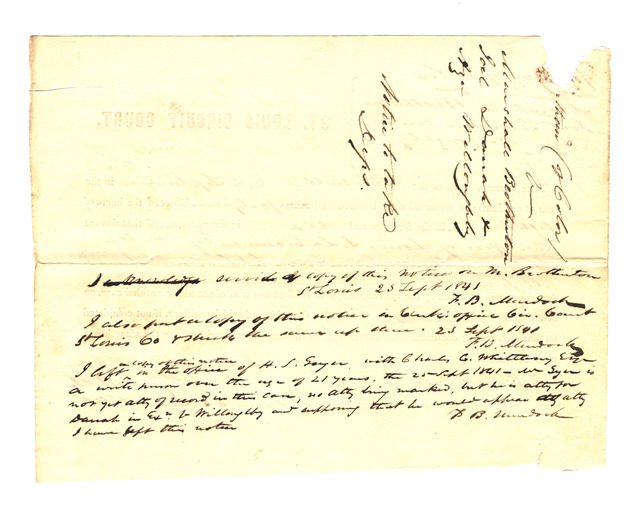 Thom (of Color)
v
Marshall Brotherton
Joel Danah &
Willoughby
Notice to take
Deps.
I acknowledge served copy of this notice on M. Brotherton
St Louis 25 Sept 1841
F. B. Murdoch
I also put a copy of this notice in Clerks office Cir. Court
St Louis Co & stuck the same up there. 25 Sept 1841
F. B. Murdoch
I left a copy of this notice in the office of H. S. Geyer with Charles C. Whittlesey Esqr
a white person over the age of 21 years, the 25 Sept 1841 - Mr Geyer is
not yet atty of record in this case, no atty being marked, but he is atty for
Danah in Exn v Willoughby and supposing that he would appear atty
I have left this notice
F. B. Murdoch
ST. LOUIS CIRCUIT COURT.